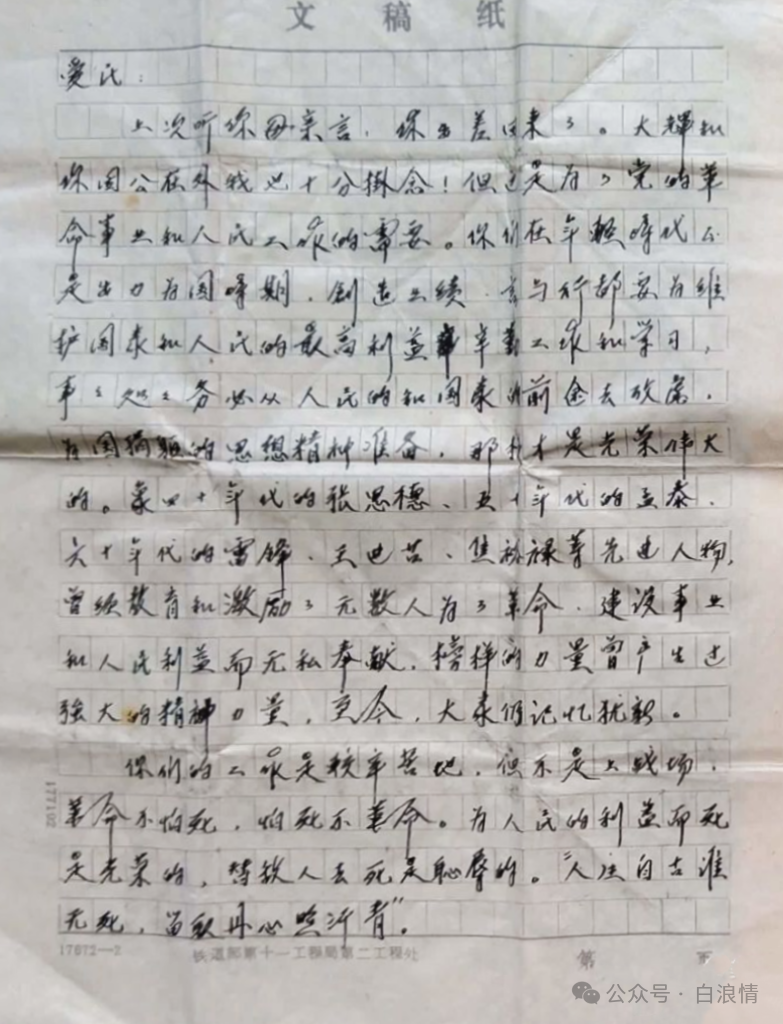 文稿纸
爱民：
上次听你母亲言，你出差回来了。大輝和
你因公在外我也十分掛念！但这是为了党的革
命事业和人民工作的需要。你们在年轻時代正
是出力为国時期，創造业绩，言与行都要为维
护国家和人民的最高利益辛勤工作和学习，
事々处々务必从人民的和国家的前途去放索，
为国捐躯的思想精神准备，那才是光荣伟大
的。象四十年代的张思德、五十年代的孟泰、
六十年代的雷锋、王进喜、焦裕禄等先进人物，
曾经教育和激励了无数人为了革命、建设事业
和人民利益而无私奉献，榜样的力量曾产生过
強大的精神力量，至今，大家仍记忆犹新。
你们的工作是较辛苦地，但不是上战场，
革命不怕死，怕死不革命。为人民的利益而死
是光荣的，替敌人去死是恥辱的。“人生自古谁
无死，留取丹心照汗青”。
177192
17872—2 铁道部第十一工程局第二工程处 第 页
公众号 · 白浪情